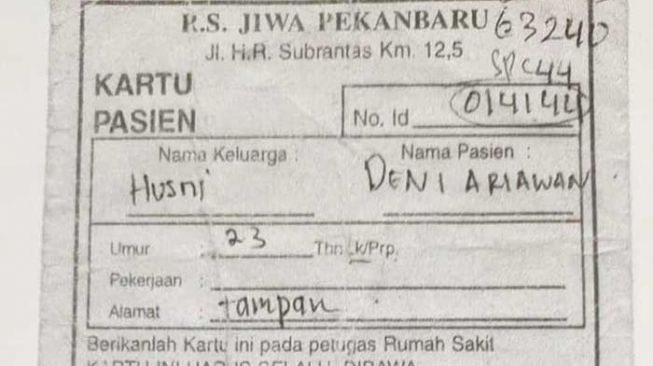 R.S. JIWA PEKANBARU 63240
Jl. H.R. Subrantas Km. 12,5
SPC44
KARTU
PASIEN
No. Id 014144
Nama Keluarga : Nama Pasien :
Husni DENI ARIAWAN
Umur : 23 Thn Lk/Prp.
Pekerjaan :
Alamat : tampan
Berikanlah Kartu ini pada petugas Rumah Sakit
KARTU INI HARUS SELALU DIBAWA